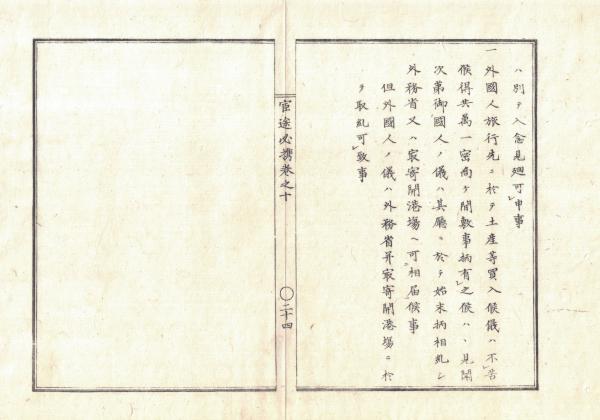 ハ別テ入念見廻可申事
一外國人旅行先ニ於テ土産等買入候儀ハ不苦
候得共萬一密商ケ間敷事柄有之候ハヽ見聞
次第御國人ノ儀ハ其廳ニ於テ始末柄相糺シ
外務省又ハ最寄開港場ヘ可相届候事
但外國人ノ儀ハ外務省并最寄開港場ニ於
テ取糺可致事
官途必携巻之十
〇二十四